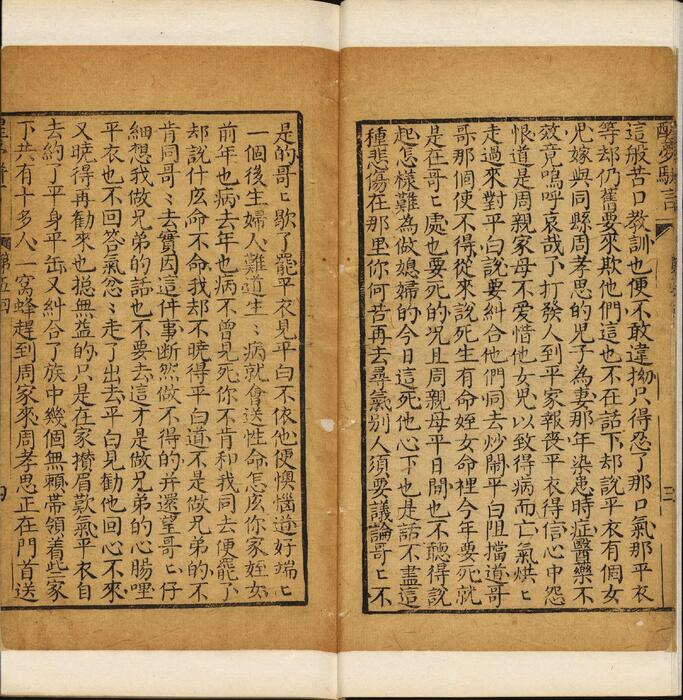 醒夢駢言
三
這般苦口教訓也便不敢違拗只得忍了那口氣那平衣
等却仍舊要來欺他們這也不在話下却說平衣有個女
兒嫁與同縣周孝思的兒子為妻那年染患時症醫藥不
效竟嗚呼哀哉了打發人到平家報喪平衣得信心中怨
恨道是周親家母不愛惜他女兒以致得病而亡氣烘㇄
走過來對平白說要糾合他們同去炒鬧平白阻擋道哥
哥那個使不得從來說死生有命姪女命裡今年要死就
是在哥㇄處也要死的況且周親母平日間也不聽得說
起怎樣難為做媳婦的今日這死他心下也是話不盡這
種悲傷在那里你何苦再去尋氣別人須要議論哥㇄不
是的哥㇄歇了罷平衣見平白不依他便懊惱道好端㇄
一個後生婦人難道生㇄病就會送性命怎庅你家姪女
前年也病去年也病不曾見死你不肯和我同去便罷了
却說什庅命不命我却不曉得平白道不是做兄弟的不
肯同哥㇄去實因這件事斷然做不得的并還望哥㇄仔
細想我做兄弟的話也不要去這才是做兄弟的心腸哩
平衣也不回答氣忿㇄走了出去平白見勸他回心不來
又曉得再勸來也是無益的只是在家攢眉歎氣平衣自
去約了平身平缶又糾合了族中幾個無賴帶領着些家
下共有十多人一窩蜂趕到周家來周孝思正在門首送
第五回
四